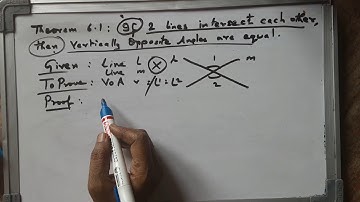 Theorem 6.1: If 2 lines intersect each other,
then vertically opposite Angles are equal.
Given: Line l × l 1 m
Line m
To Prove: VOA ∠1 = ∠2 2
Proof: